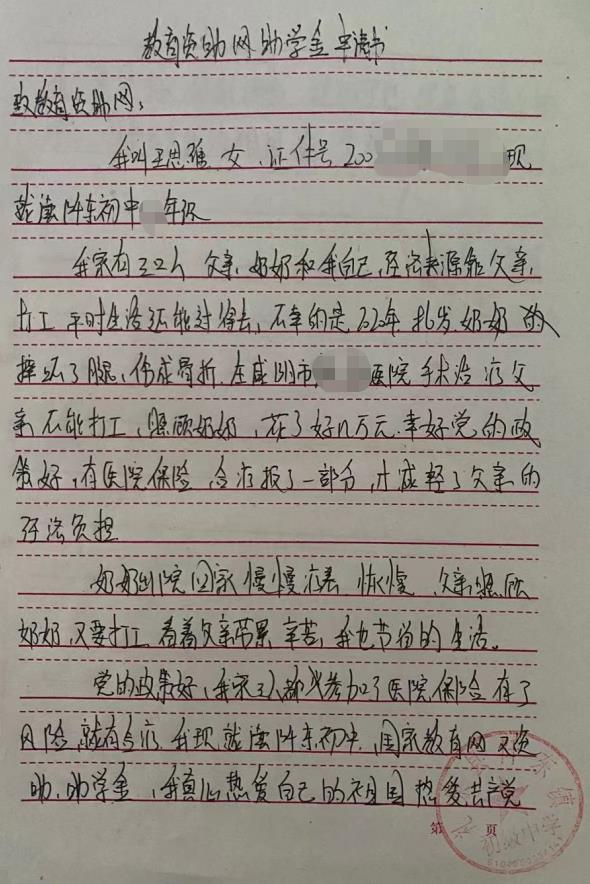 教育资助网助学金申请书
致教育资助网：
我叫王思雅，女，证件号200 现
就读阡东初中 年级
我家有三口人 父亲，奶奶和我自己，经济来源靠父亲
打工 平时生活还能过得去，不幸的是2022年 奶奶 的
摔坏了腿，伤成骨折 在咸阳市 医院 手术治疗父
亲不能打工，照顾奶奶，花了好几万元 幸好党的政
策好，有医院保险 合疗报了一部分，才减轻了父亲的
经济负担
奶奶出院回家慢慢 恢复 父亲照顾
奶奶，又要打工 看着父亲劳累 辛苦 我也节省的生活。
党的政策好，我家3人都 参加了医院保险 有了
风险 就有 疗 我现就读阡东初中，国家教育网又资
助，助学金，我真心热爱自己的祖国 热爱共产党
第 页
东镇
初级中学